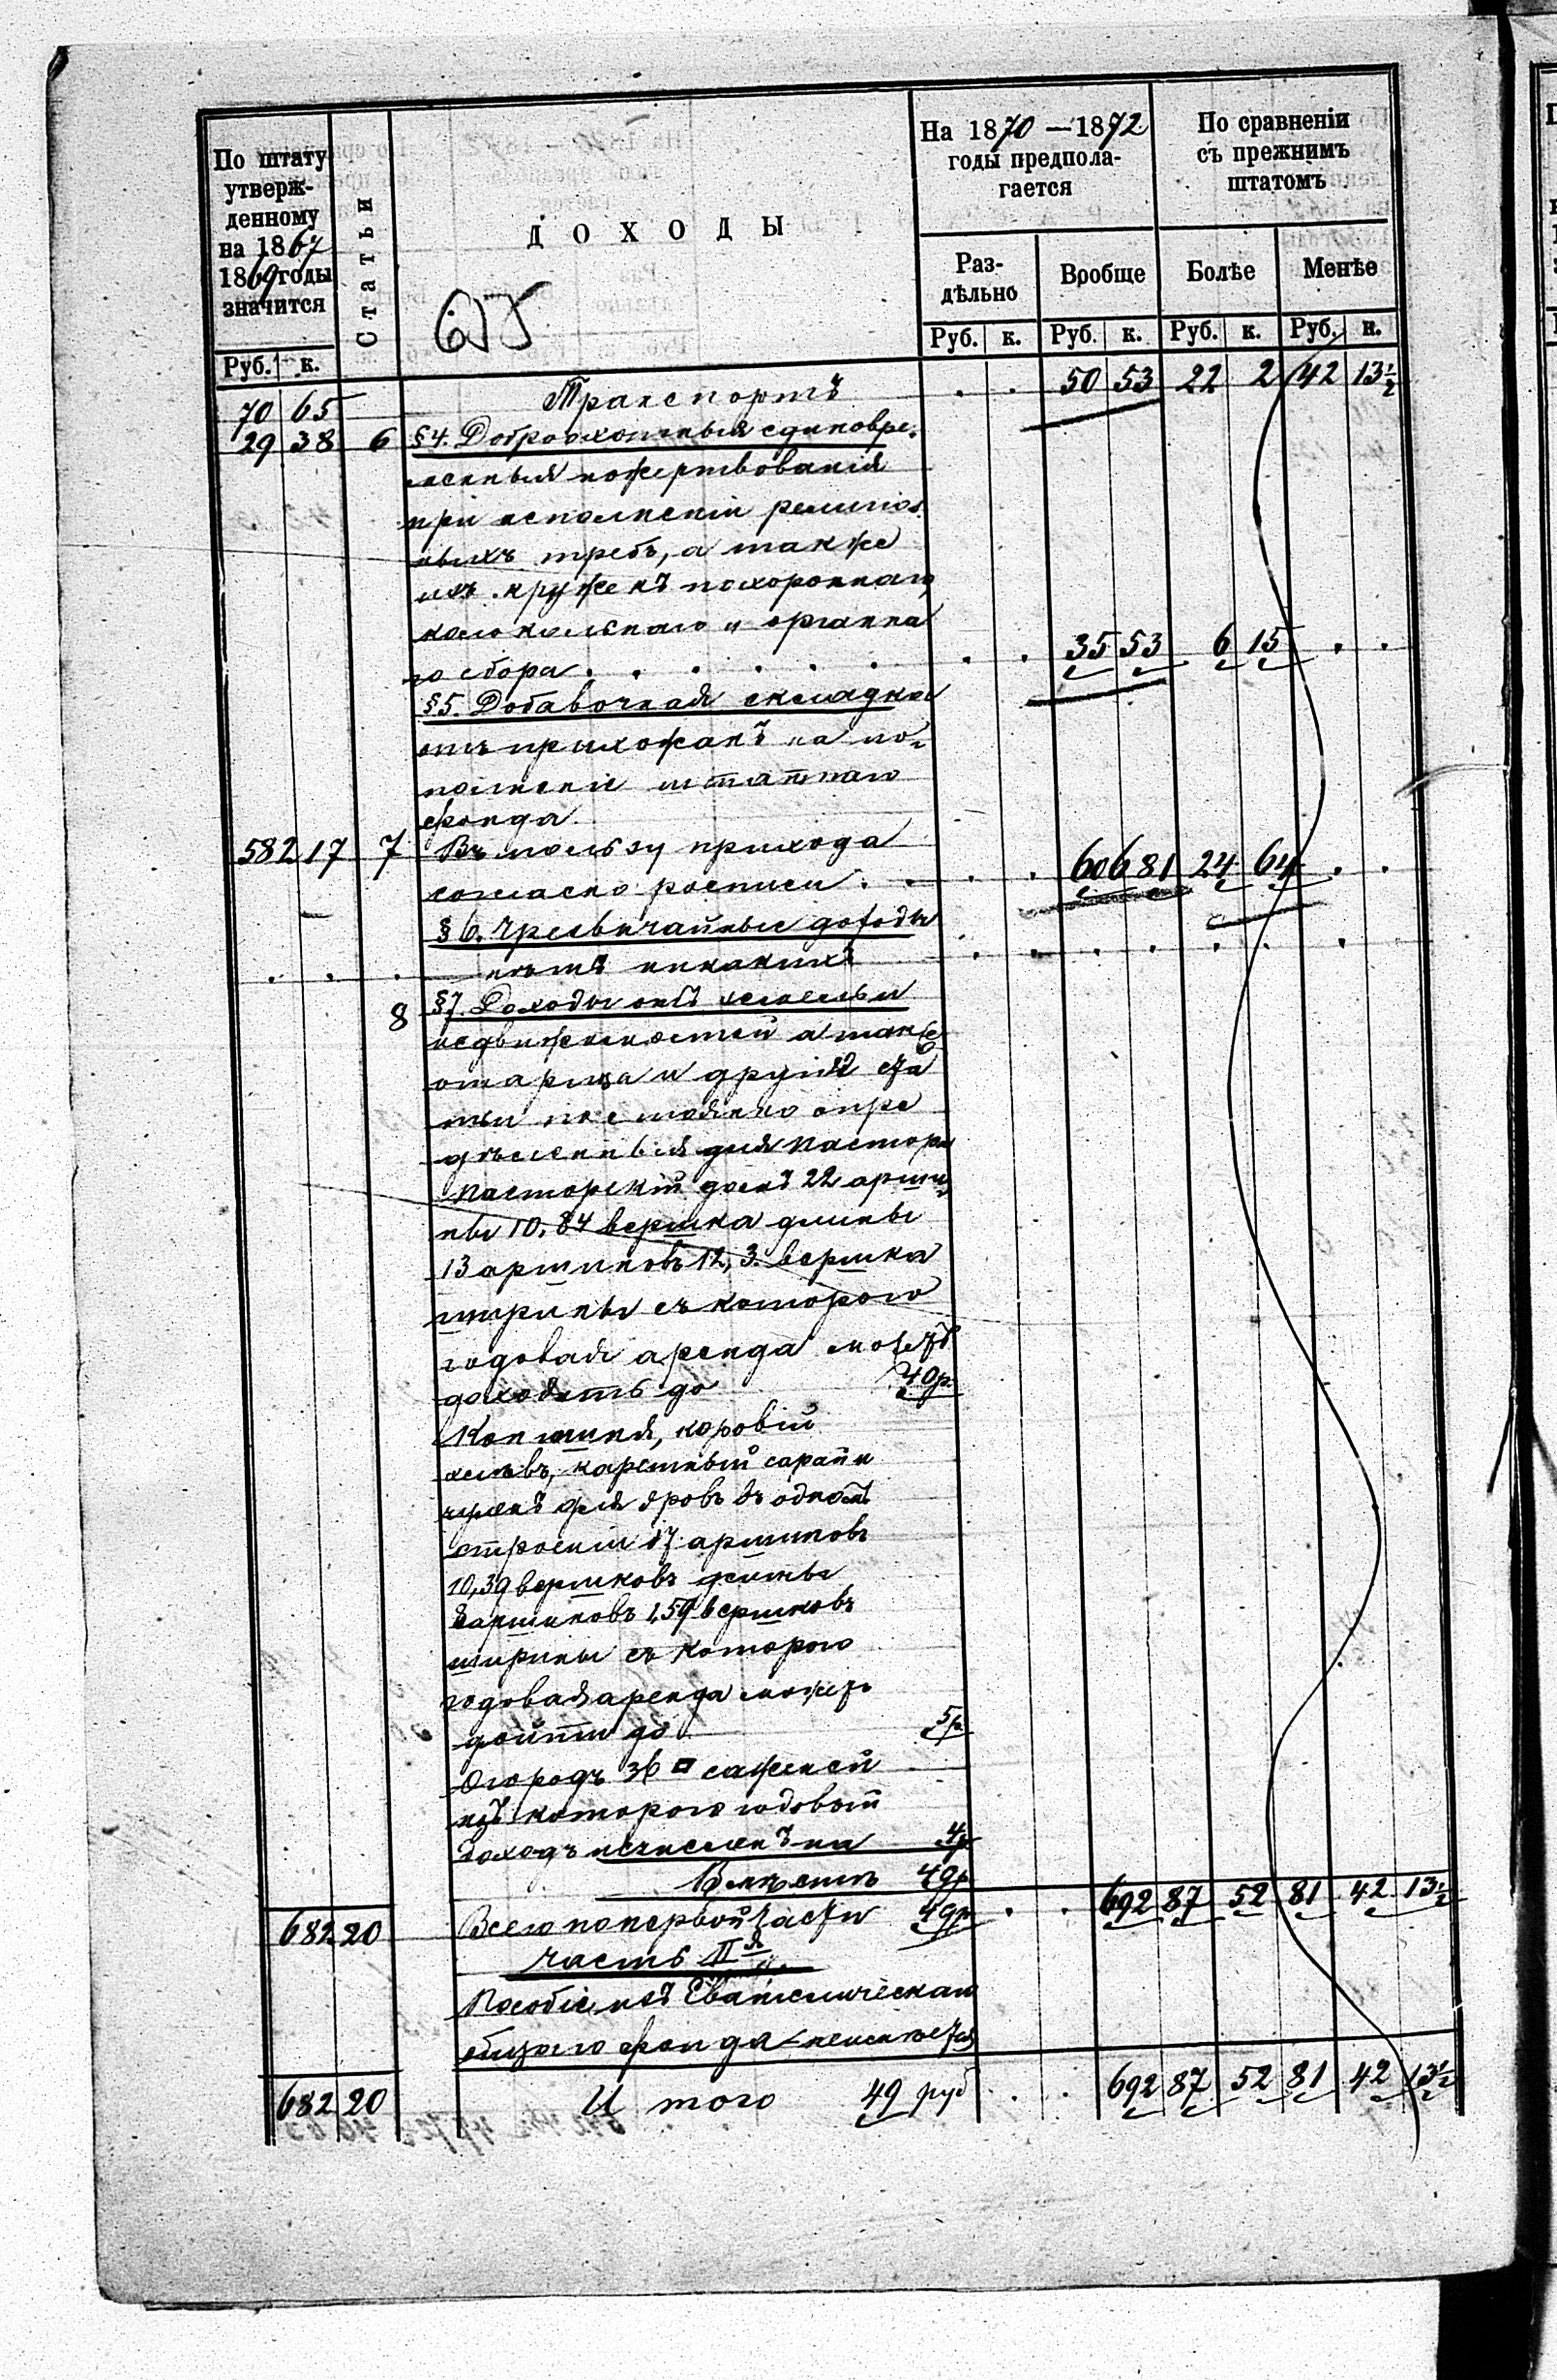 По штату утвержденному на 1867 1869 годы значится
Статьи
ДОХОДЫ
На 1870 — 1872 годы предполагается
По сравненію съ прежнимъ штатомъ
Раздѣльно
Вообще
Болѣе
Менѣе
Руб. к.
Руб. к. Руб. к. Руб. к. Руб. к.
70 65 Транспортъ . . 50 53 22 2 42 13½
29 38 6 §4. Доброохотныя единовре-
менныя пожертвованія
при исполненіи религіоз
ныхъ требъ, а также
изъ кружекъ похороннаго,
колокольнаго и органна
го сбора . . . . . . . 35 53 6 15 . .
§5. Добавочная складка
отъ прихожанъ на по-
полненіе штатнаго
фонда.
582 17 7 Въ пользу прихода
согласно росписи . . . . 606 81 24 64 . .
§6. Чрезвычайные доходы
. . . нѣтъ никакихъ . . . . . . .
8 §7. Доходы отъ
недвижимостей а также
и другія
постоянно опре
дѣленныя для пастора
Пасторскій домъ 22 арши
ны 10,84 вершка длины
13 аршиновъ 12,3 вершка
ширины съ котораго
годовая аренда можетъ
доходить до 40р
Конюшня, коровій
хлѣвъ, каретный сарай и
для дровъ въ одномъ
строеніи 17 аршиновъ
10,39 вершковъ длины
8 аршиновъ 1,59 вершковъ
ширины съ котораго
годовая аренда можетъ
дойти до 5р
Огородъ 36 □ саженей
изъ котораго годовый
доходъ исчисленъ на 4р
Вмѣстѣ 49р
682 20 Всего по первой части 49р . . 692 87 52 81 42 13½
Часть IIя
Пособіе изъ Евангелическаго
общаго фонда – неимѣется
682 20 Итого 49 руб . . 692 87 52 81 42 13½